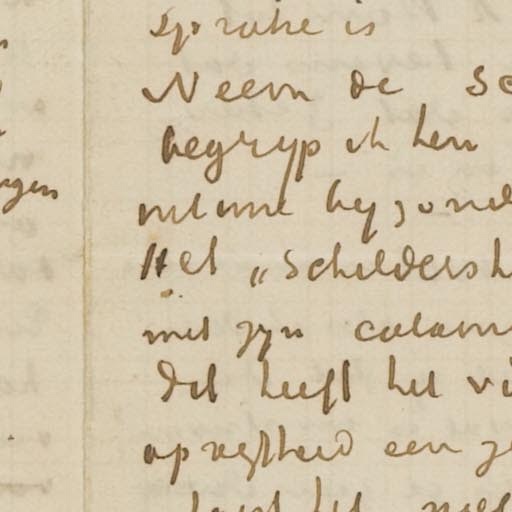 sprake is
Neem de
begryp ik hen
met une byzond
Het „schildersh
met zyn calam
Dit heeft het vi
opregtheid een ge